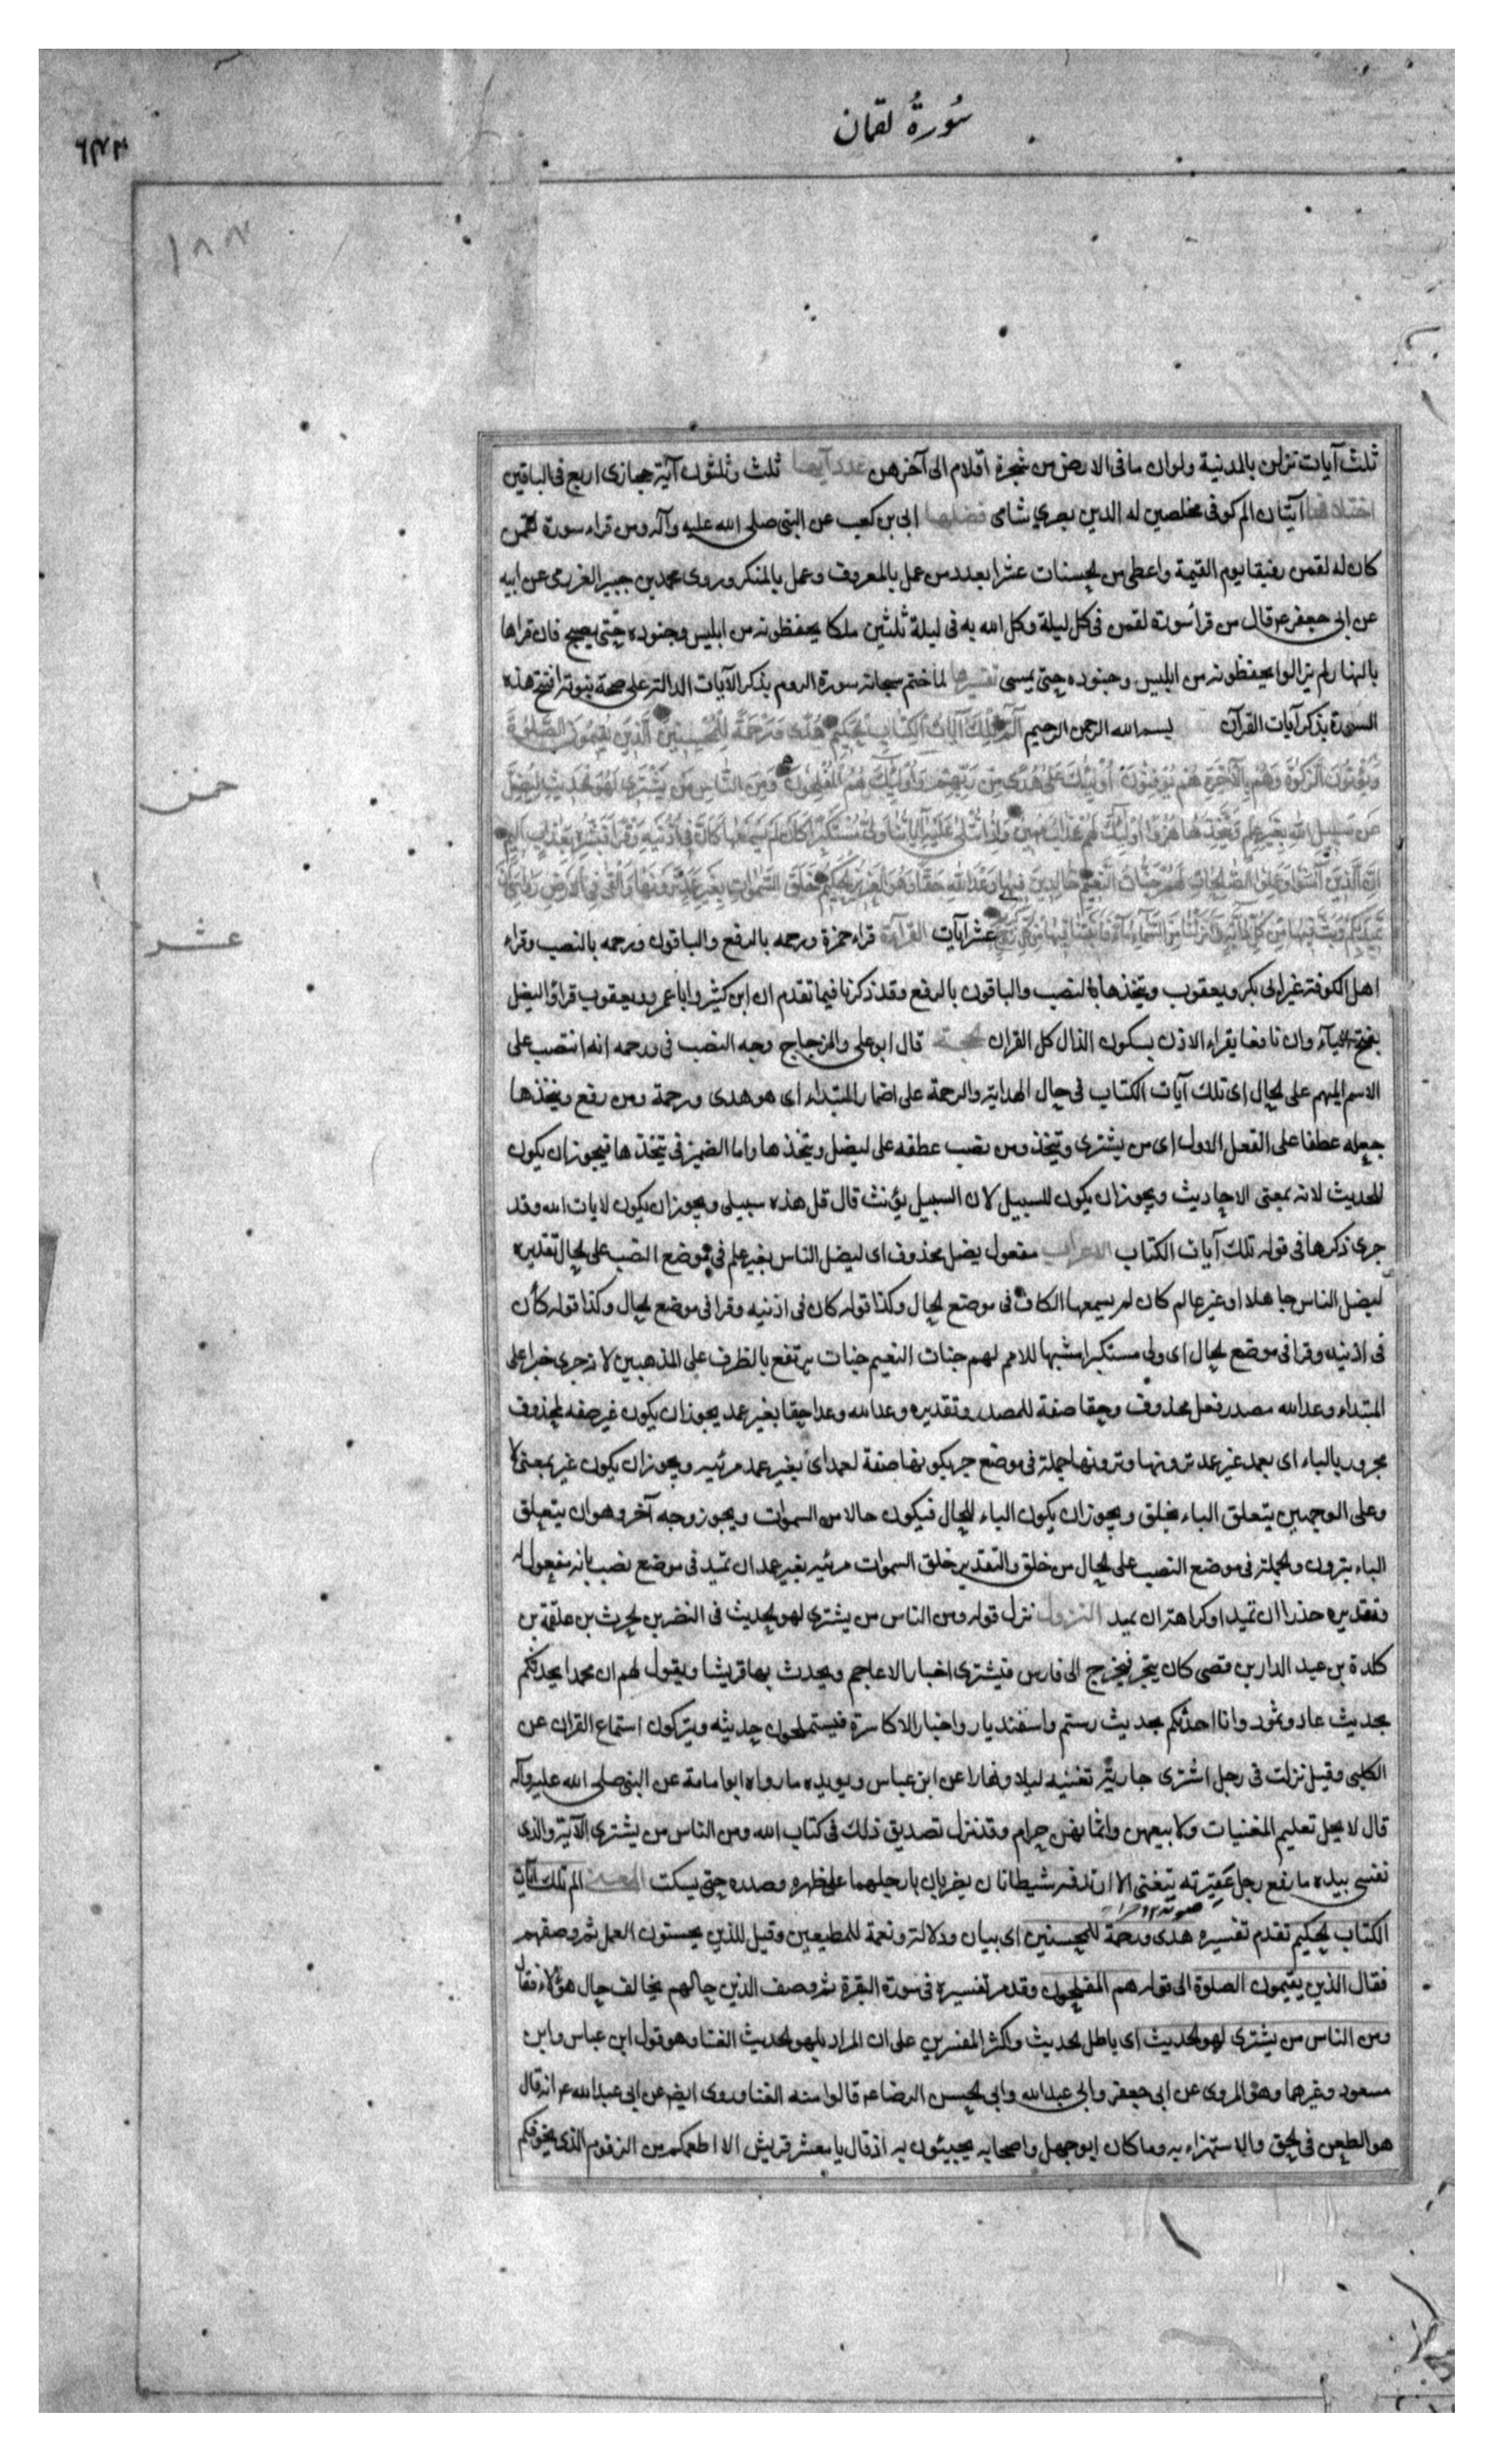 سُورةُ لقمان
ثلث آيات نزلن بالمدنية ولوان ما فى الارض من شجرة اقلام الى آخرهن عدد آيها ثلث وثلثون آية حجازى اربع فى الباقين
اختلافها آيتان الم كوفى مخلصين له الدين بصري شامى فضلها ابى بن كعب عن النبى صلى الله عليه وآله ومن قراء سورة لقمن
كان له لقمن رفيقا يوم القيمة واعطى من الحسنات عشرا بعدد من عمل بالمعروف وعمل بالمنكر وروى محمد بن جبير الغزرمى عن ابيه
عن ابى جعفر ع قال من قرأ سورة لقمن فى كل ليلة وكل الله به فى ليلة ثلثين ملكا يحفظونه من ابليس وجنوده حتى يصبح فان قراها
بالنهار لم يزالوا يحفظونه من ابليس وجنوده حتى يمسى تفسيرها لما ختم سبحانه سورة الروم بذكر الآيات الدالة على صحة نبوته افتتح هذه
السورة بذكر آيات القرآن بسم الله الرحمن الرحيم الٓمٓ تِلْكَ آيَاتُ الْكِتَابِ الْحَكِيمِ هُدًى وَرَحْمَةً لِلْمُحْسِنِينَ الَّذِينَ يُقِيمُونَ الصَّلٰوةَ
وَيُؤْتُونَ الزَّكٰوةَ وَهُمْ بِالْآخِرَةِ هُمْ يُوقِنُونَ أُولٰئِكَ عَلىٰ هُدًى مِنْ رَبِّهِمْ وَأُولٰئِكَ هُمُ الْمُفْلِحُونَ وَمِنَ النَّاسِ مَنْ يَشْتَرِي لَهْوَ الْحَدِيثِ لِيُضِلَّ
خمس
عَنْ سَبِيلِ اللهِ بِغَيْرِ عِلْمٍ وَيَتَّخِذَهَا هُزُوًا أُولٰئِكَ لَهُمْ عَذَابٌ مُهِينٌ وَإِذَا تُتْلىٰ عَلَيْهِ آيَاتُنَا وَلّىٰ مُسْتَكْبِرًا كَأَنْ لَمْ يَسْمَعْهَا كَأَنَّ فِي أُذُنَيْهِ وَقْرًا فَبَشِّرْهُ بِعَذَابٍ أَلِيمٍ
إِنَّ الَّذِينَ آمَنُوا وَعَمِلُوا الصَّالِحَاتِ لَهُمْ جَنَّاتُ النَّعِيمِ خَالِدِينَ فِيهَا وَعْدَ اللهِ حَقًّا وَهُوَ الْعَزِيزُ الْحَكِيمُ خَلَقَ السَّمٰوَاتِ بِغَيْرِ عَمَدٍ تَرَوْنَهَا وَأَلْقىٰ فِي الْأَرْضِ رَوَاسِيَ أَنْ
تَمِيدَ بِكُمْ وَبَثَّ فِيهَا مِنْ كُلِّ دَابَّةٍ وَأَنْزَلْنَا مِنَ السَّمَاءِ مَاءً فَأَنْبَتْنَا فِيهَا مِنْ كُلِّ زَوْجٍ كَرِيمٍ عشر آيات القراءة قراء حمزة ورحمه بالرفع والباقون ورحمه بالنصب وقراء
عشر
اهل الكوفة غير ابى بكر ويعقوب ويتخذها بالنصب والباقون بالرفع وقد ذكرنا فيما تقدم ان ابن كثير وابا عمرو ويعقوب قراؤا ليضل
بفتح الياء وان نافعا يقراء الاذن بسكون الذال كل القران الحجة قال ابو على والزجاج وجه النصب فى ورحمه انه انتصب على
الاسم المبهم على الحال اى تلك آيات الكتاب فى حال الهداية والرحمة على اضمار المبتداء اى هو هدى ورحمة ومن رفع ويتخذها
جعله عطفا على الفعل الاول اى من يشترى ويتخذ ومن نصب عطفه على ليضل ويتخذها واما الضمير فى يتخذها فيجوز ان يكون
للحديث لانه بمعنى الاحاديث ويجوز ان يكون للسبيل لان السبيل يؤنث قال قل هذه سبيلى ويجوز ان يكون لايات الله وقد
جرى ذكرها فى قوله تلك آيات الكتاب الاعراب مفعول يضل محذوف اى ليضل الناس بغير علم فى موضع النصب على الحال تقديره
ليضل الناس جاهلا او غير عالم كان لم يسمعها الكاف فى موضع الحال وكذا قوله كان فى اذنيه وقرا فى موضع الحال وكذا قوله كأن
فى اذنيه وقرا فى موضع الحال اى ولى مستكبرا مشبها للاصم لهم جنات النعيم جنات يرتفع بالظرف على المذهبين لانه جرى خبرا على
المبتداء وعد الله مصدر فعل محذوف وحقا صفة للمصدر وتقديره وعد الله وعدا حقا بغير عمد يجوز ان يكون غير صفه لمحذوف
مجرور بالباء اى بعمد غير عمد ترونها وترونها جملة فى موضع جر بكونها صفة لعمد اى بغير عمد مرئيه ويجوز ان يكون غير بمعنى لا
وعلى الوجهين يتعلق الباء بخلق ويجوز ان يكون الباء للحال فيكون حالا من السموات ويجوز وجه آخر وهو ان يتعلق
الباء بترون والجملة فى موضع النصب على الحال من خلق والتقدير خلق السموات مرئيه بغير عمد ان تميد فى موضع نصب بانه مفعول له
وتقديره حذرا ان تميد او كراهة ان تميد النزول نزل قوله ومن الناس من يشترى لهو الحديث فى النضر بن الحرث بن علقمة بن
كلدة بن عبد الدار بن قصى كان يتجر فيخرج الى فارس فيشترى اخبار الاعاجم ويحدث بها قريشا ويقول لهم ان محمدا يحدثكم
بحديث عاد وثمود وانا احدثكم بحديث رستم واسفنديار واخبار الاكاسرة فيستملحون حديثه ويتركون استماع القران عن
الكلبى وقيل نزلت فى رجل اشترى جارية تغنيه ليلا ونهارا عن ابن عباس ويويده ما رواه ابو امامة عن النبى صلى الله عليه وآله
قال لا يحل تعليم المغنيات ولا بيعهن واثمانهن حرام وقد نزل تصديق ذلك فى كتاب الله ومن الناس من يشترى الآية والذى
نفسى بيده ما رفع رجل عقيرته يتغنى الا ارتدفه شيطانان يضربان بارجلهما على ظهره وصدره حتى يسكت المعنى الم تلك آيات
الكتاب الحكيم تقدم تفسيره هدى ورحمة للمحسنين اى بيان ودلالة ونعمة للمطيعين وقيل للذين يحسنون العمل ثم وصفهم
فقال الذين يقيمون الصلوة الى قوله هم المفلحون وقد مر تفسيره فى سورة البقرة ثم وصف الذين حالهم يخالف حال هؤلاء فقال
ومن الناس من يشترى لهو الحديث اى باطل الحديث واكثر المفسرين على ان المراد بلهو الحديث الغنا وهو قول ابن عباس وابن
مسعود وغيرهما وهو المروى عن ابى جعفر وابى عبد الله وابى الحسن الرضا ع قالوا منه الغنا وروى ايضا عن ابى عبد الله ع انه قال
هو الطعن فى الحق والاستهزاء به وما كان ابو جهل واصحابه يجيبئون به اذ قال يا معشر قريش الا اطعمكم من الزقوم الذى يخوفكم